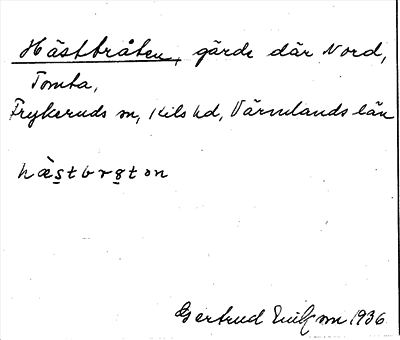 Hästbråten, gärde där Nord,
Tomta,
Frykeruds sn, Kils hd, Värmlands län
hæ̀stbrɷton
Gertrud 1936